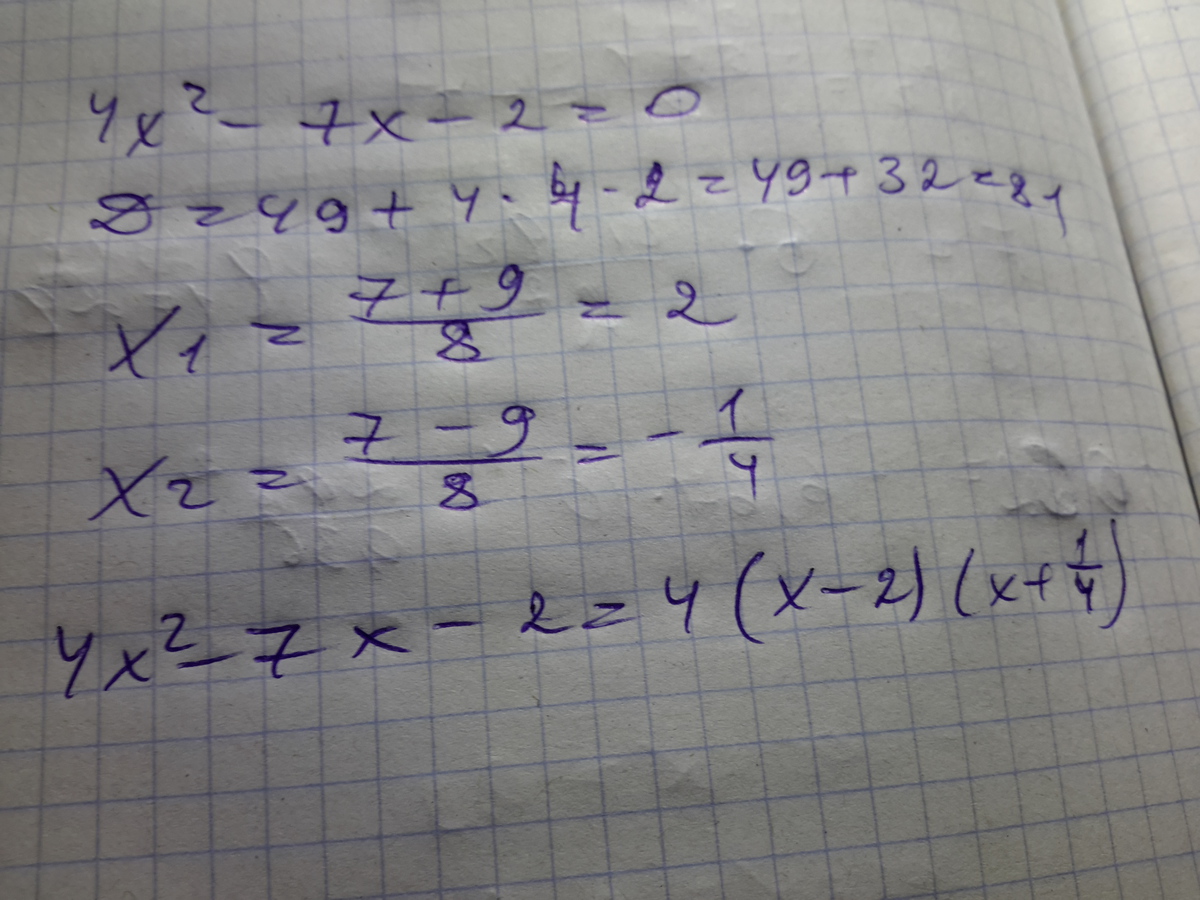 4x² - 7x - 2 = 0
D = 49 + 4 · 4 · 2 = 49 + 32 = 81
x₁ = (7 + 9)/8 = 2
x₂ = (7 - 9)/8 = - 1/4
4x² - 7x - 2 = 4 (x - 2) (x + 1/4)